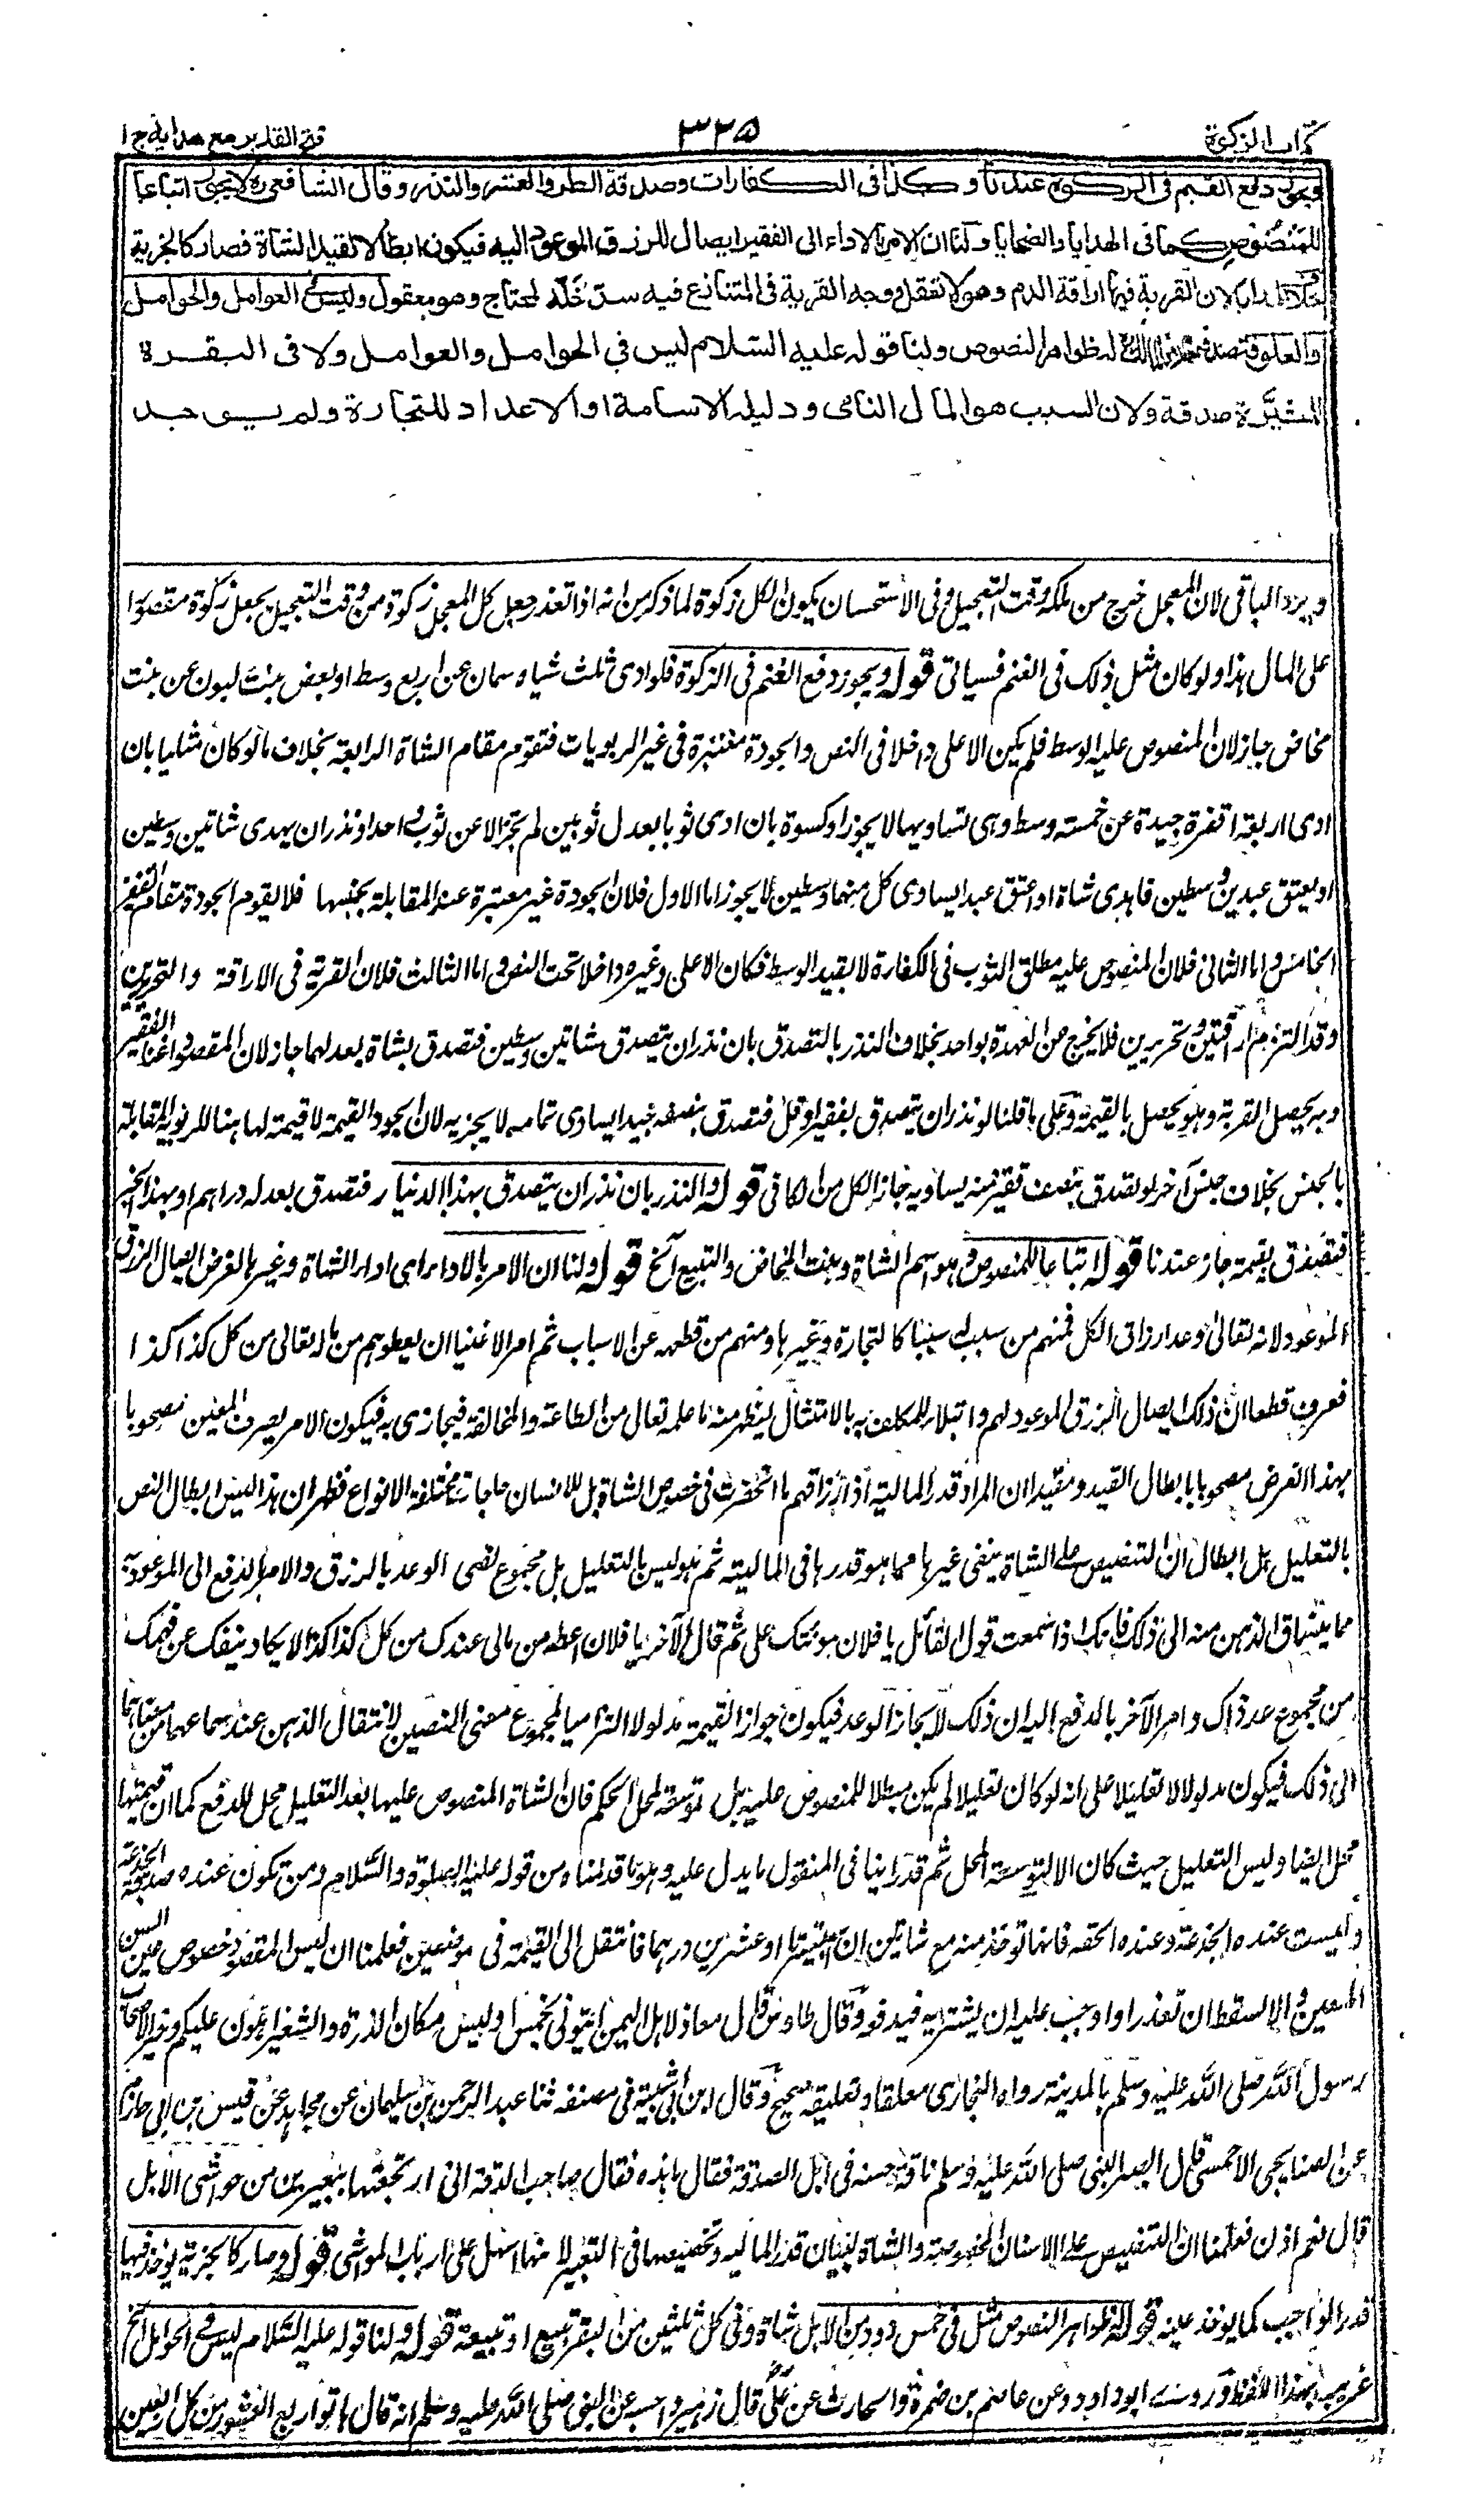 كتاب الزكوة
٣٢٥
فتح القدير مع هداية ج ١
ويجوز دفع القيم فى الزكوة عندنا وكذا فى الكفارات وصدقة الفطر والعشر والنذر وقال الشافعى رح لا يجوز اتباعا
للمنصوص كما فى الهدايا والضحايا ولنا ان الامر بالاداء الى الفقير ايصال للرزق الموعود اليه فيكون ابطالا لقيد الشاة فصار كالجزية
بخلاف الهدايا لان القربة فيها اراقة الدم وهو لا تعقل ووجه القربة فى المتنازع فيه سد خلة المحتاج وهو معقول وليس فى العوامل والحوامل
والعلوفة صدقة خلافا لمالك له ظواهر النصوص ولنا قوله عليه السلام ليس فى الحوامل والعوامل ولا فى البقرة
المثيرة صدقة ولان السبب هو المال النامى ودليله الاسامة او الاعداد للتجارة ولم يوجد
ويرد الباقى لان المعجل خرج من ملكه وقت التعجيل وفى الاستحسان يكون الكل زكوة لما ذكر من انه اذا تعذر جعل كل المعجل زكوة من وقت التعجيل يجعل زكوة مقصورا
على المال هذا ولو كان مثل ذلك فى الغنم فسياتى قوله ويجوز دفع القيم فى الزكوة فلو ادى ثلث شياه سمان عن اربع وسط او بعض بنت لبون عن بنت
مخاض جاز لان المنصوص عليه الوسط فلم يكن الاعلى داخلا فى النص والجودة معتبرة فى غير الربويات فتقوم مقام الشاة الرابعة بخلاف ما لو كان مثليا بان
ادى اربعة اقفزة جيدة عن خمسة وسط وهى تساويها لا يجوز او كسوة بان ادى ثوبا يعدل ثوبين لم يجز الا عن ثوب واحد او نذر ان يهدى شاتين وسطين
او يعتق عبدين وسطين فاهدى شاة او اعتق عبدا يساوى كل منهما وسطين لا يجوز اما الاول فلان الجودة غير معتبرة عند المقابلة بجنسها فلا تقوم الجودة مقام القفيز
الخامس واما الثانى فلان المنصوص عليه مطلق الثوب فى الكفارة لا بقيد الوسط فكان الاعلى وغيره داخلا تحت النص واما الثالث فلان القربة فى الاراقة والتحرير
وقد التزم اراقتين وتحريرين فلا يخرج من العهدة بواحد بخلاف النذر بالتصدق بان نذر ان يتصدق بشاتين وسطين فتصدق بشاة بعدلهما جاز لان المقصود اغناء الفقير
وبه يحصل القربة وهو يحصل بالقيمة وعلى ما قلنا لو نذر ان يتصدق بقفيز دقل فتصدق بنصفه جيدا يساوى تمامه لا يجزيه لان الجودة لا قيمة لها هنا للربوية للمقابلة
بالجنس بخلاف جنس آخر لو تصدق بنصف قفيز منه يساويه جاز الكل من الكافى قوله والنذر بان نذر ان يتصدق بهذا الدينار فتصدق بعدله دراهم او بهذا الخبز
فتصدق بقيمته جاز عندنا قوله اتباعا للمنصوص وهو اسم الشاة وبنت المخاض والتبيع آلخ قوله ولنا ان الامر بالاداء اى اداء الشاة وغيرها لغرض ايصال الرزق
الموعود لانه تعالى وعد ارزاق الكل فمنهم من سبب له سببا كالتجارة وغيرها ومنهم من قطعه عن الاسباب ثم امر الاغنياء ان يعطوهم من ماله تعالى من كل كذا كذا
فعرف قطعا ان ذلك ايصال الرزق الموعود لهم وابتلاء للمكلف به بالامتثال ليظهر منه ما علمه تعالى من الطاعة والمخالفة فيجازى به فيكون الامر بصرف المعين مصحوبا
بهذا الغرض مصحوبا بابطال القيد ومفيدا ان المراد قدر المالية اذ ارزاقهم ما انحصرت فى خصوص الشاة بل للانسان حاجات مختلفة الانواع فظهر ان هذا ليس ابطال النص
بالتعليل بل ابطال ان التنصيص على الشاة ينفى غيرها مما هو قدرها فى المالية ثم هو ليس بالتعليل بل مجموع نصى الوعد بالرزق والامر بالدفع الى الموعود به
مما ينساق الذهن منه الى ذلك فانك اذا سمعت قول القائل يا فلان مؤنتك على ثم قال لآخر يا فلان اعطه من مالى عندك من كل كذا كذا لا يكاد ينفك عن فهمك
من مجموع عد ذاك وامر الآخر بالدفع اليه ان ذلك لانجاز الوعد فيكون جواز القيمة مدلولا التزاميا لمجموع معنى النصين لانتقال الذهن عند سماعهما من معناهما
الى ذلك فيكون مدلولا لا تعليلا على انه لو كان تعليلا لم يكن مبطلا للمنصوص عليه بل توسعة لمحل الحكم فان الشاة المنصوص عليها بعد التعليل محل للدفع كما ان قيمتها
محل ايضا وليس التعليل حيث كان الا لتوسعة المحل ثم قد راينا فى المنقول ما يدل عليه وهو ما قدمناه من قوله عليه الصلوة والسلام ومن تكون عنده صدقة الجذعة
وليست عنده الجذعة وعنده الحقة فانها توخذ منه مع شاتين ان استيسرتا او عشرين درهما فانتقل الى القيمة فى موضعين فعلمنا ان ليس المقصود خصوص عين السن
المعين والا لسقط ان تعذر او اوجب عليه ان يشتريه فيدفعه وقال طاوس قال معاذ لاهل اليمن ايتونى بخميس او لبيس مكان الذرة والشعير اهون عليكم وخير لاصحاب
رسول الله صلى الله عليه وسلم بالمدينة رواه البخارى معلقا وتعليقه صحيح وقال ابن ابى شيبة فى مصنفه ثنا عبد الرحمن بن سليمان عن مجاهد عن قيس بن ابى حازم
عن الصنابحى الاحمسى قال ابصر النبى صلى الله عليه وسلم ناقة حسنة فى ابل الصدقة فقال ما هذه فقال صاحب الصدقة انى ارتجعتها ببعيرين من حواشى الابل
قال نعم اذن فعلمنا ان التنصيص على الاسنان المخصوصة والشاة لبيان قدر المالية وتخصيصها فى التعبير لانها اسهل على ارباب المواشى قوله وصار كالجزية يوخذ فيها
قدر الواجب كما يوخذ عينه قوله له ظواهر النصوص مثل فى خمس ذود من الابل شاة وفى كل ثلثين من البقر تبيع او تبيعة قوله ولنا قوله عليه السلام ليس فى الحوامل الخ
غريب بهذا اللفظ وروى ابو داود عن عاصم بن ضمرة والحارث عن على قال زهير واحسبه عن النبى صلى الله عليه وسلم انه قال هاتوا ربع العشور من كل اربعين